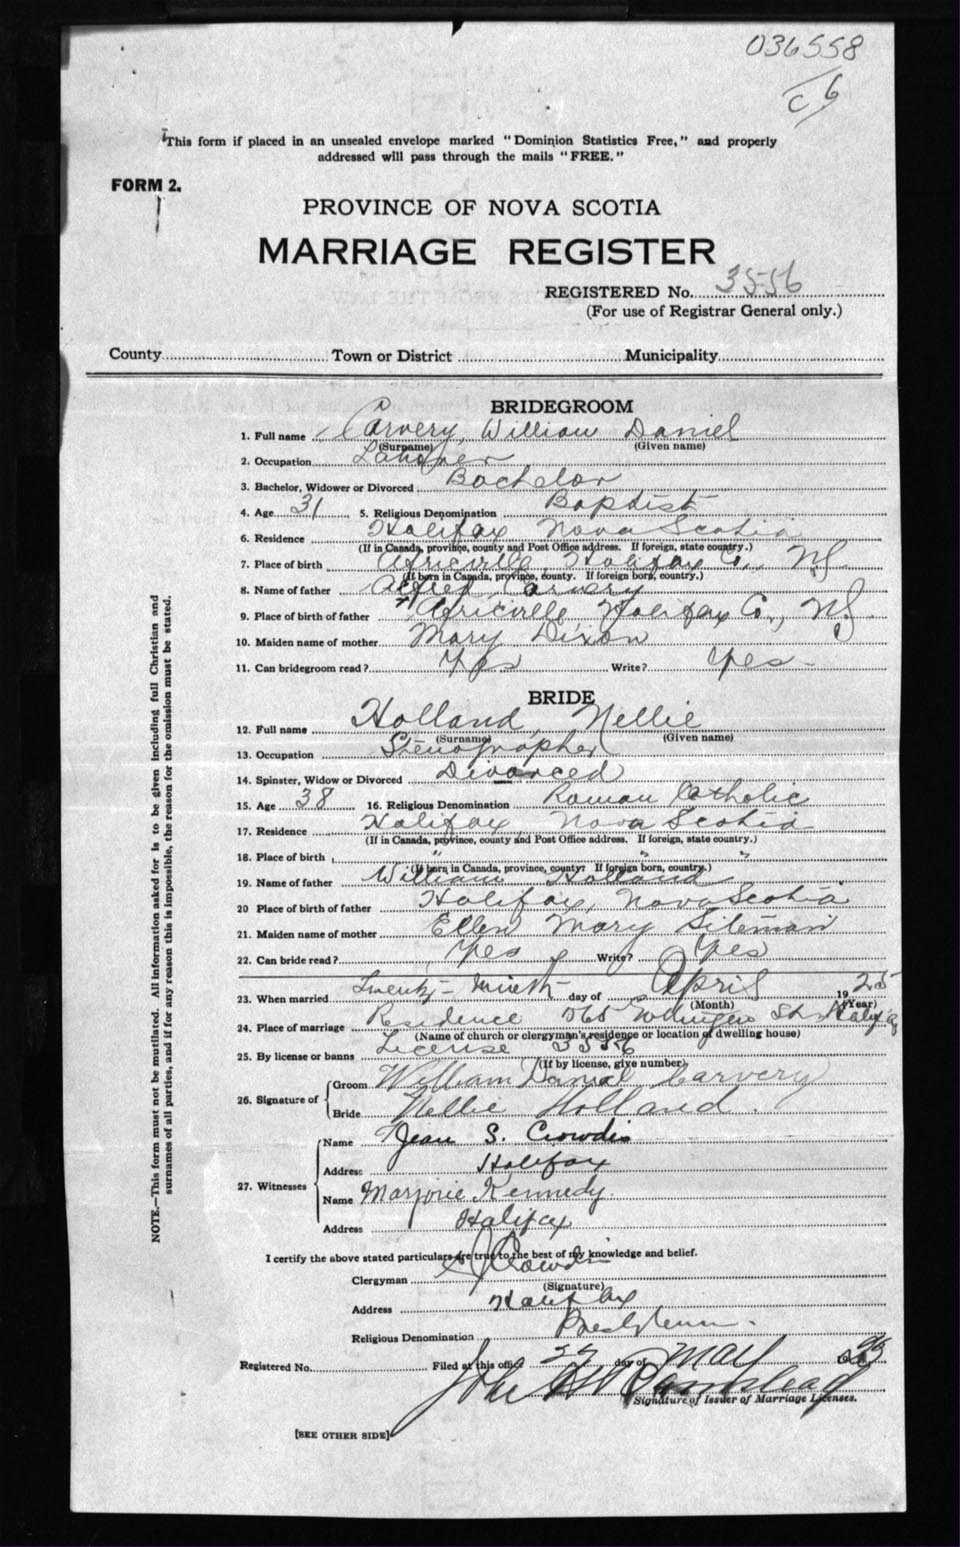 036558
C 6
This form if placed in an unsealed envelope marked "Dominion Statistics Free," and properly
addressed will pass through the mails "FREE."
FORM 2.
PROVINCE OF NOVA SCOTIA
MARRIAGE REGISTER
REGISTERED No. 3556
(For use of Registrar General only.)
County Town or District Municipality
BRIDEGROOM
1. Full name Carvery, William Daniel
(Surname) (Given name)
2. Occupation
3. Bachelor, Widower or Divorced Bachelor
4. Age 31 5. Religious Denomination Baptist
6. Residence Halifax Nova Scotia
(If in Canada, province, county and Post Office address. If foreign, state country.)
7. Place of birth Africville, Halifax Co., NS
(If born in Canada, province, county. If foreign born, country.)
8. Name of father Alfred Carvery
9. Place of birth of father Africville Halifax Co., NS
10. Maiden name of mother Mary Dixon
11. Can bridegroom read? Yes Write? Yes
BRIDE
12. Full name Holland, Nellie
(Surname) (Given name)
13. Occupation Stenographer
14. Spinster, Widow or Divorced Divorced
15. Age 38 16. Religious Denomination Roman Catholic
17. Residence Halifax, Nova Scotia
(If in Canada, province, county and Post Office address. If foreign, state country.)
18. Place of birth " " "
(If born in Canada, province, county. If foreign born, country.)
19. Name of father William Holland
20 Place of birth of father Halifax, Nova Scotia
21. Maiden name of mother Ellen Mary
22. Can bride read? Yes Write? Yes
23. When married Twenty-ninth day of April 1925
(Month) (Year)
24. Place of marriage Residence St. Halifax
(Name of church or clergyman's residence or location of dwelling house)
25. By license or banns License 3556
(If by license, give number)
26. Signature of Groom William Daniel Carvery
Bride Nellie Holland.
27. Witnesses Name Jean S. Crowdis
Address Halifax
Name Marjorie Kennedy.
Address Halifax
I certify the above stated particulars are true to the best of my knowledge and belief.
Clergyman Crowdis
(Signature)
Address Halifax
Religious Denomination Presbyterian.
Registered No. Filed at this office day of May
John
Signature of Issuer of Marriage Licenses.
[SEE OTHER SIDE]
NOTE.—This form must not be mutilated. All information asked for is to be given including full Christian and
surnames of all parties, and if for any reason this is impossible, the reason for the omission must be stated.